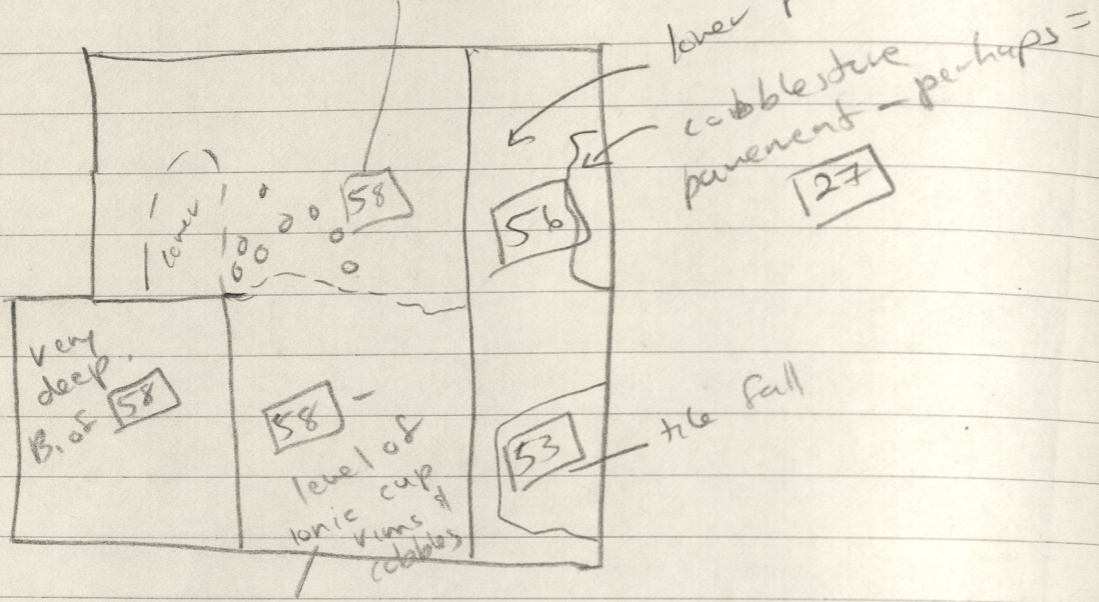 lower
cobblestone
pavement – perhaps =
27
58
lower
56
very
deep.
B. of 58
58 –
level of
Ionic cup
rims &
cobbles
53
tile fall